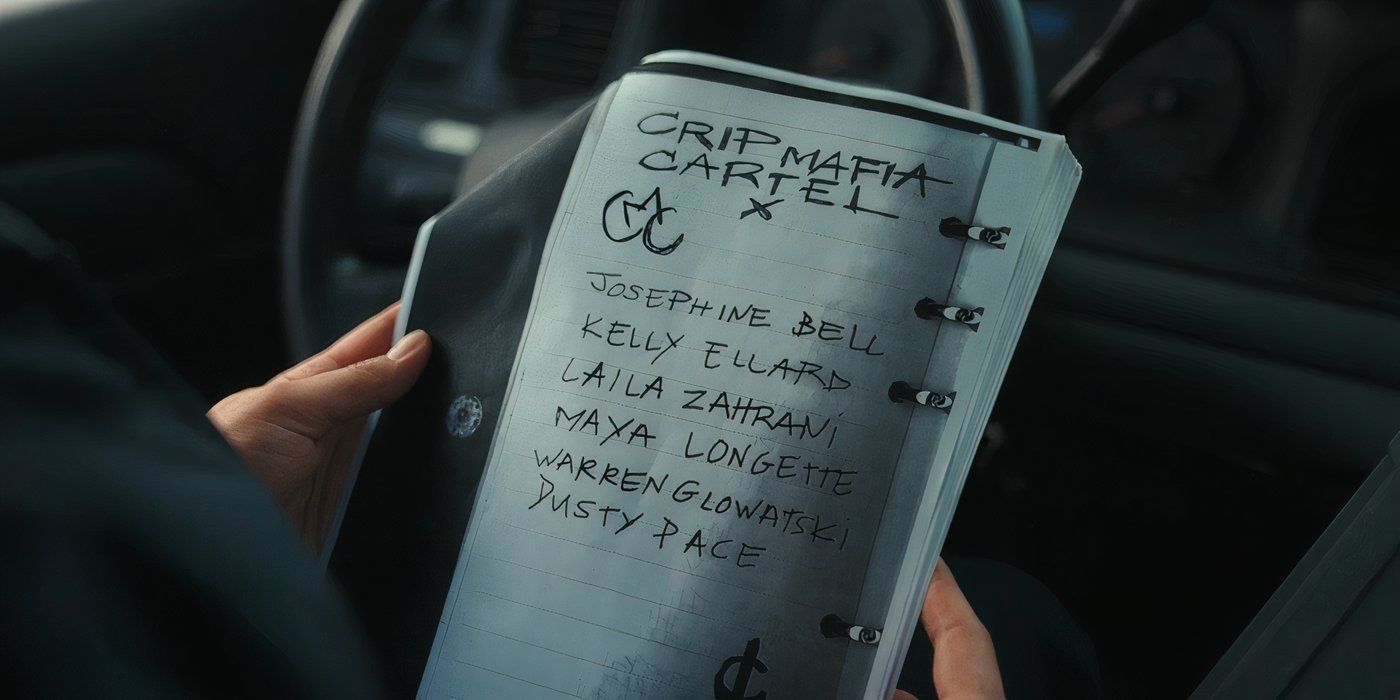 CRIP MAFIA
CARTEL
X
CMC
JOSEPHINE BELL
KELLY ELLARD
LAILA ZAHRANI
MAYA LONGETTE
WARREN GLOWATSKI
DUSTY PACE